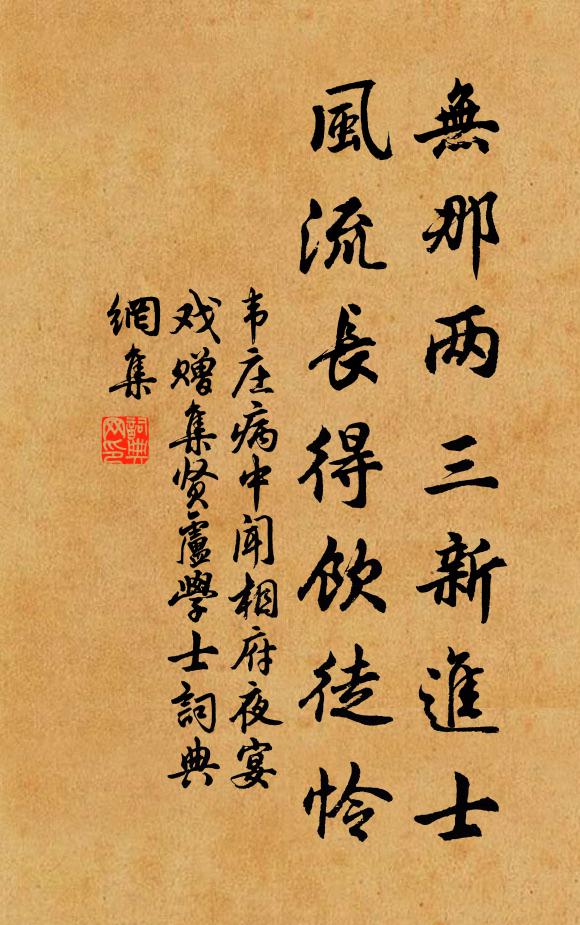 無那两三新進士
風流長得飲徒怜
韦庄病中闻相府夜宴
戏赠集贤盧學士詞典
網集
詞典网印